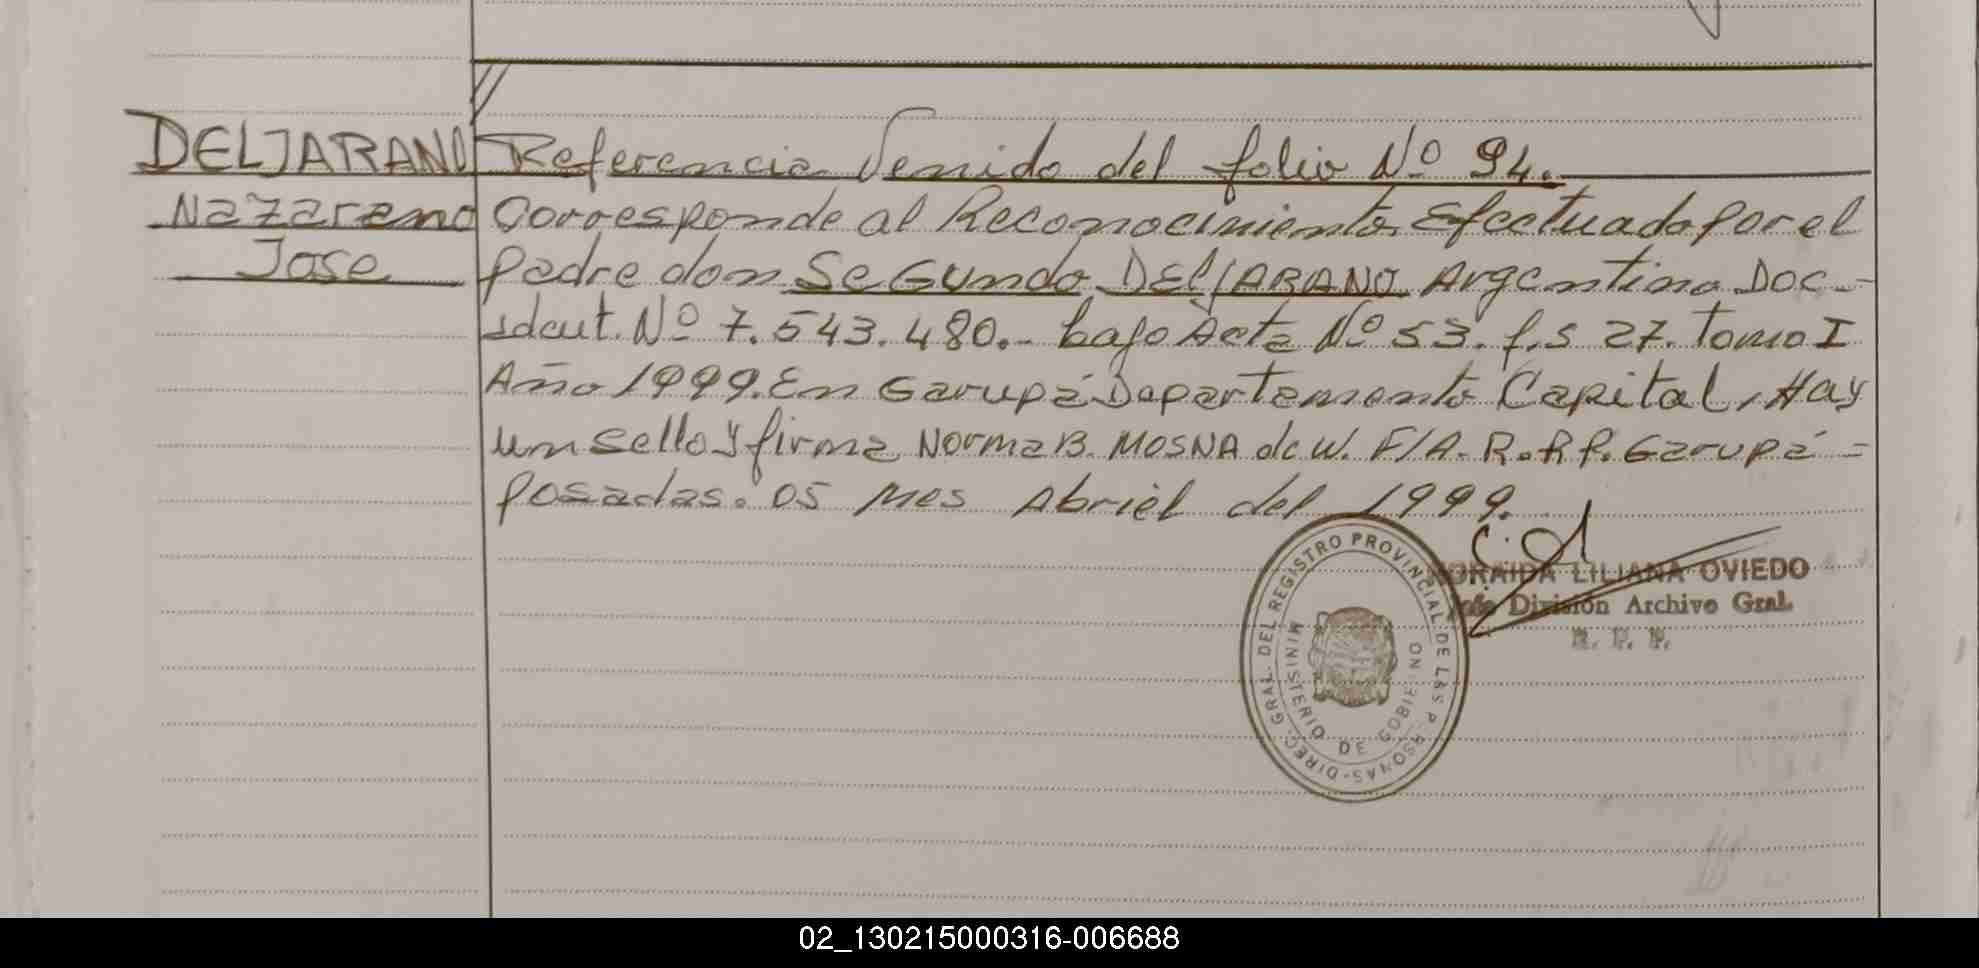 DELJARANO
Nazareno
Jose
Referencia Venido del folio Nº 94.
Corresponde al Reconocimiento Efectuado por el
padre don SEGUndo DELJARANO Argentino Doc-
ident. Nº 7.543.480.- bajo Acta Nº 53. f.s 27. Tomo I
Año 1999. En Garupá Departamento Capital, Hay
un sello y firma Norma B. MOSNA de W. F/A. R.R.P. Garupá =
Posadas. 05 Mes Abriel del 1999.
DIREC. GRAL. DEL REGISTRO PROVINCIAL DE LAS P RSONAS-
MINISTERIO DE GOBIE NO
NORAIDA LILIANA OVIEDO
Jefe División Archivo Gral.
R. P. P.
02_130215000316-006688